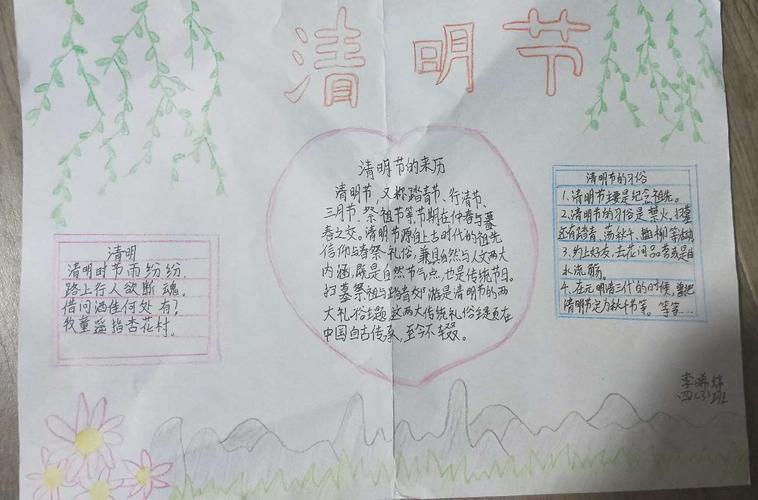 清明节
清明
清明时节雨纷纷,
路上行人欲断魂。
借问酒佳何处有?
牧童遥指杏花村。
清明节的来历
清明节,又称踏青节、行清节、
三月节、祭祖节等,节期在仲春与暮
春之交。清明节源自上古时代的祖先
信仰与春祭礼俗,兼具自然与人文两大
内涵,既是自然节气点,也是传统节日。
扫墓祭祖与踏青郊游是清明节的两
大礼俗主题,这两大传统礼俗主题在
中国自古传承,至今不辍。
清明节的习俗
1、清明节主要是纪念祖先。
2、清明节的习俗是禁火、扫墓
还有踏青、荡秋千、插柳等活动
3、约上好友,去花间品茗或是曲
水流觞。
4、在元明清三代的时候,曾把
清明节定为秋千节等。等等……
李
四(3)班